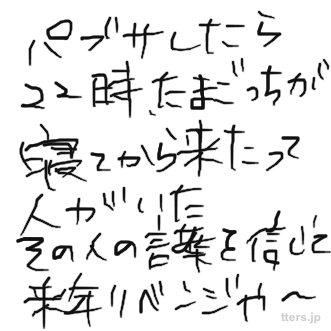 パブサしたら
22時たまごっちが
寝てから来たって
人がいた
その人の言葉を信じて
来年リベンジや〜
tters.jp